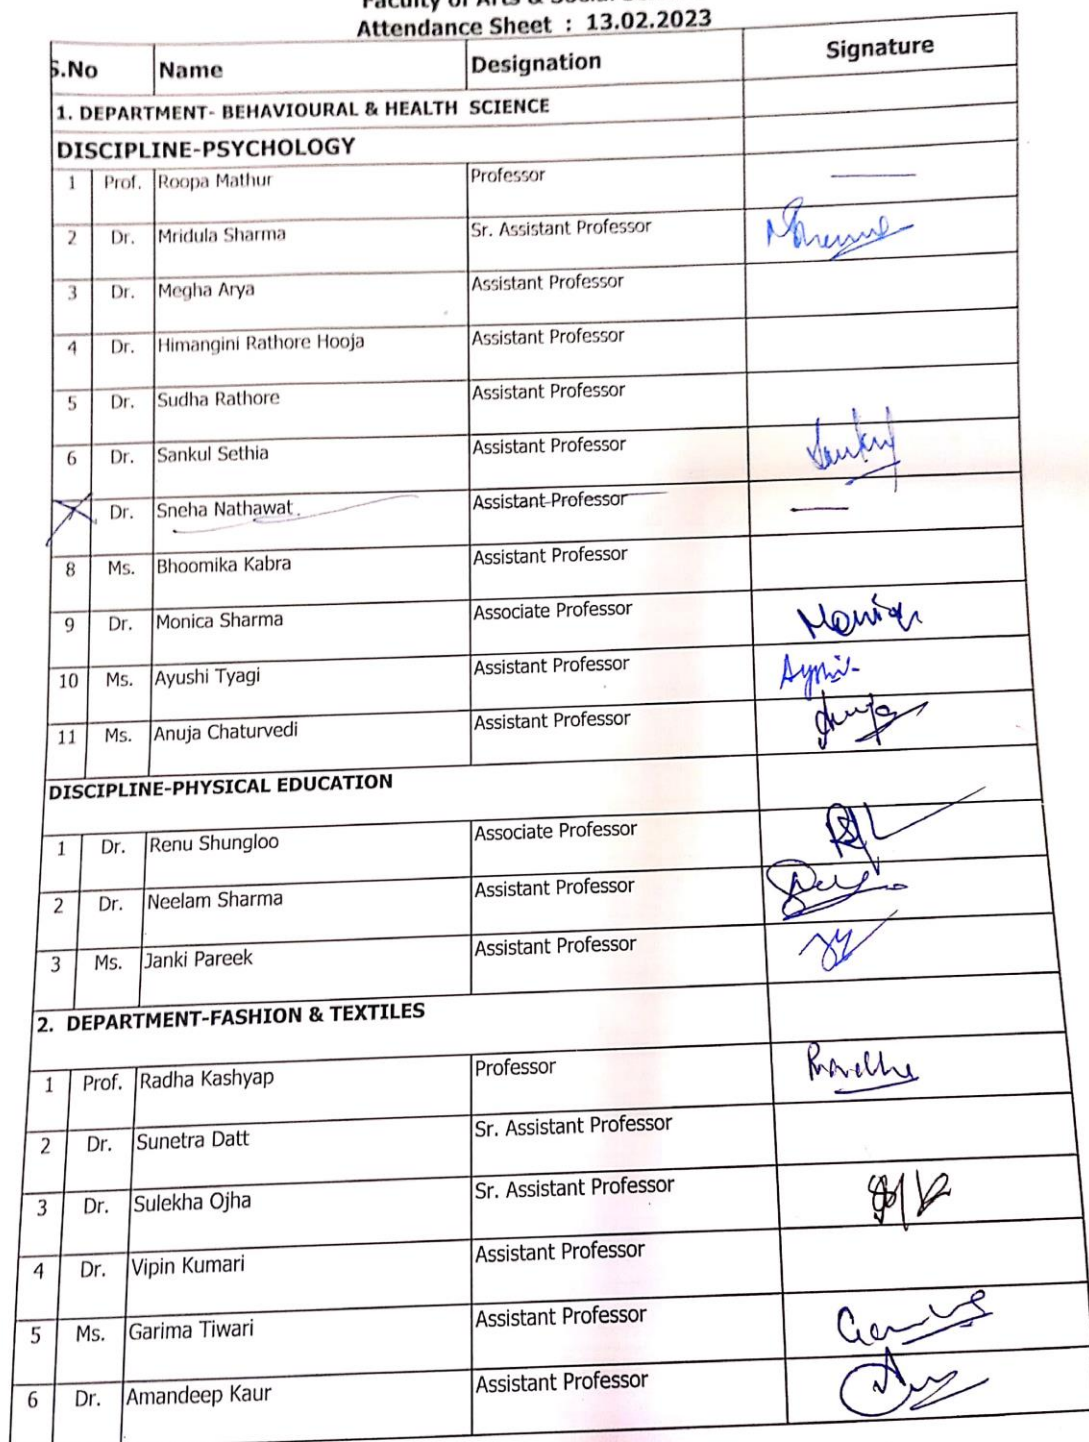 Faculty of Arts & Social
Attendance Sheet : 13.02.2023
S.No Name Designation Signature
1. DEPARTMENT- BEHAVIOURAL & HEALTH SCIENCE
DISCIPLINE-PSYCHOLOGY
1 Prof. Roopa Mathur Professor
2 Dr. Mridula Sharma Sr. Assistant Professor
3 Dr. Megha Arya Assistant Professor
4 Dr. Himangini Rathore Hooja Assistant Professor
5 Dr. Sudha Rathore Assistant Professor
6 Dr. Sankul Sethia Assistant Professor
Dr. Sneha Nathawat Assistant Professor
8 Ms. Bhoomika Kabra Assistant Professor
9 Dr. Monica Sharma Associate Professor
10 Ms. Ayushi Tyagi Assistant Professor
11 Ms. Anuja Chaturvedi Assistant Professor
DISCIPLINE-PHYSICAL EDUCATION
1 Dr. Renu Shungloo Associate Professor
2 Dr. Neelam Sharma Assistant Professor
3 Ms. Janki Pareek Assistant Professor
2. DEPARTMENT-FASHION & TEXTILES
1 Prof. Radha Kashyap Professor
2 Dr. Sunetra Datt Sr. Assistant Professor
3 Dr. Sulekha Ojha Sr. Assistant Professor
4 Dr. Vipin Kumari Assistant Professor
5 Ms. Garima Tiwari Assistant Professor
6 Dr. Amandeep Kaur Assistant Professor